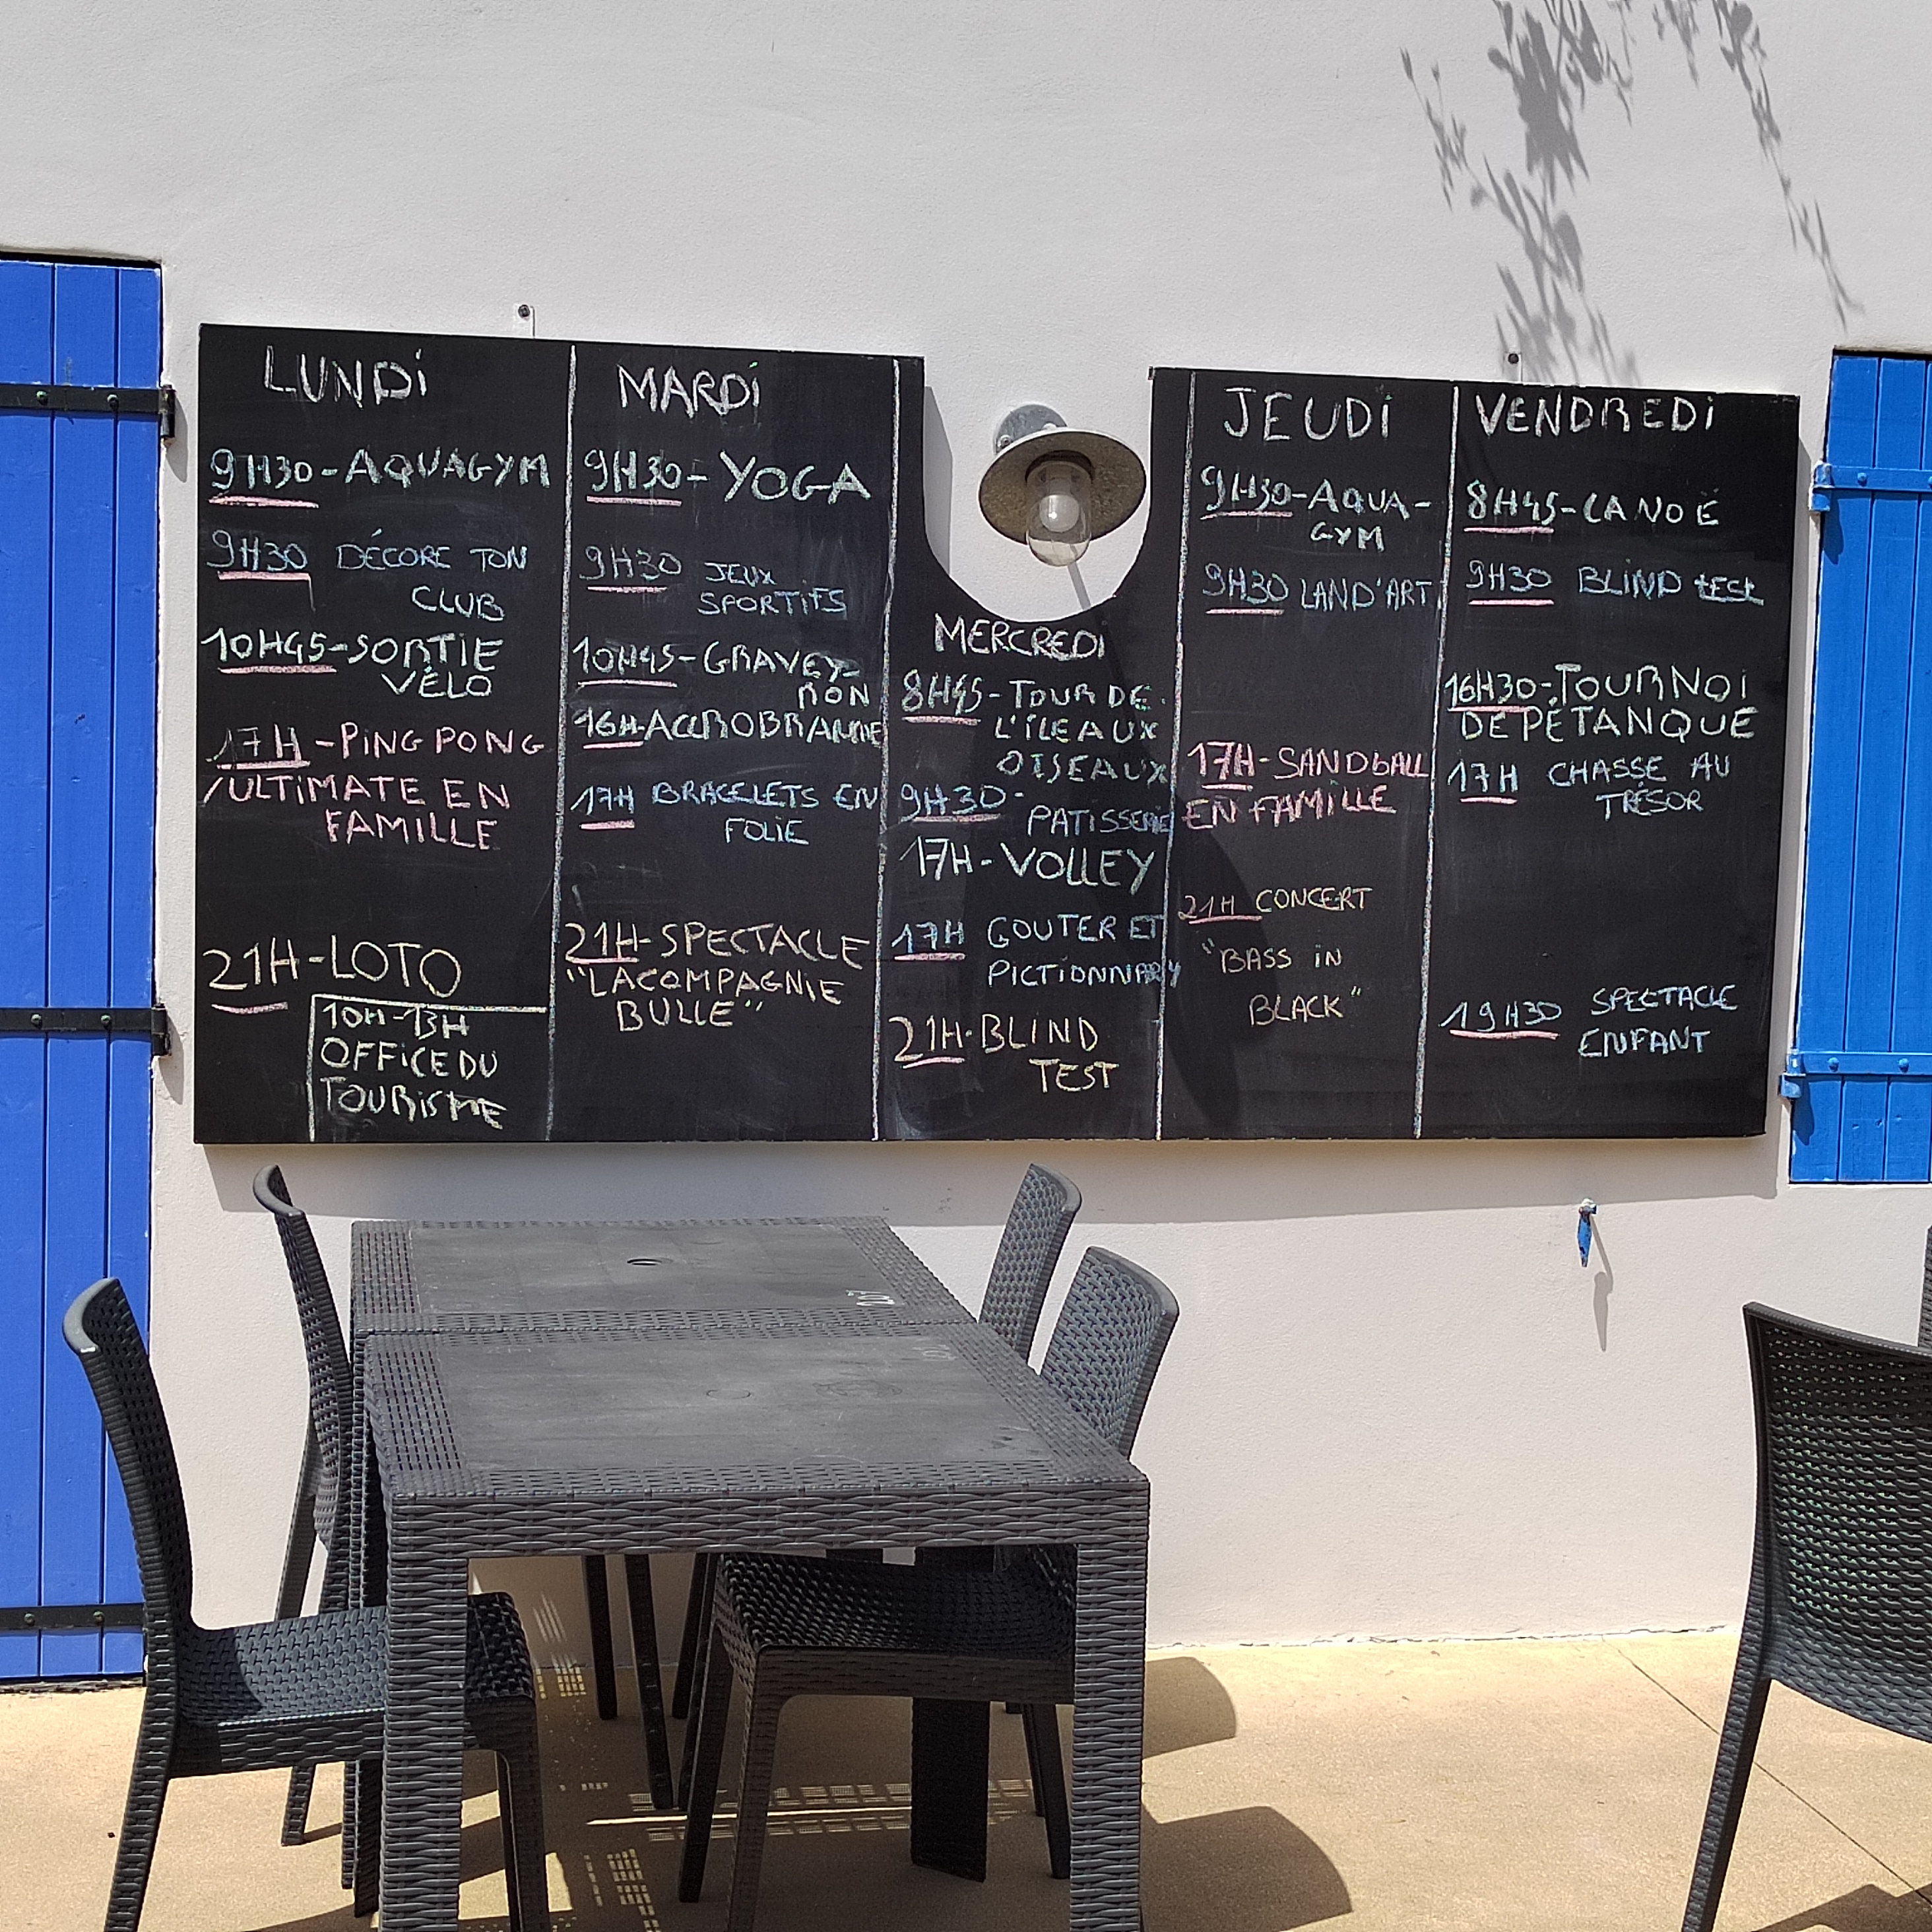 LUNDI
9H30-AQUAGYM
9H30 DÉCORE TON
CLUB
10H45-SORTIE
VÉLO
17H-PING PONG
/ULTIMATE EN
FAMILLE
21H-LOTO
10H-13H
OFFICE DU
TOURISME
MARDI
9H30-YOGA
9H30 JEUX
SPORTIFS
10H45-GRAVEY-
RON
16H-ACCROBRANCHE
17H BRACELETS EN
FOLIE
21H-SPECTACLE
"LA COMPAGNIE
BULLE"
MERCREDI
8H45-TOUR DE
L'ÎLE AUX
OISEAUX
9H30-
PATISSERIE
17H-VOLLEY
17H GOUTER ET
PICTIONNARY
21H-BLIND
TEST
JEUDI
9H30-AQUA-
GYM
9H30 LAND'ART
17H-SANDBALL
EN FAMILLE
21H CONCERT
"BASS IN
BLACK"
VENDREDI
8H45-CANOË
9H30 BLIND TEST
16H30-TOURNOI
DE PÉTANQUE
17H CHASSE AU
TRÉSOR
19H30 SPECTACLE
ENFANT